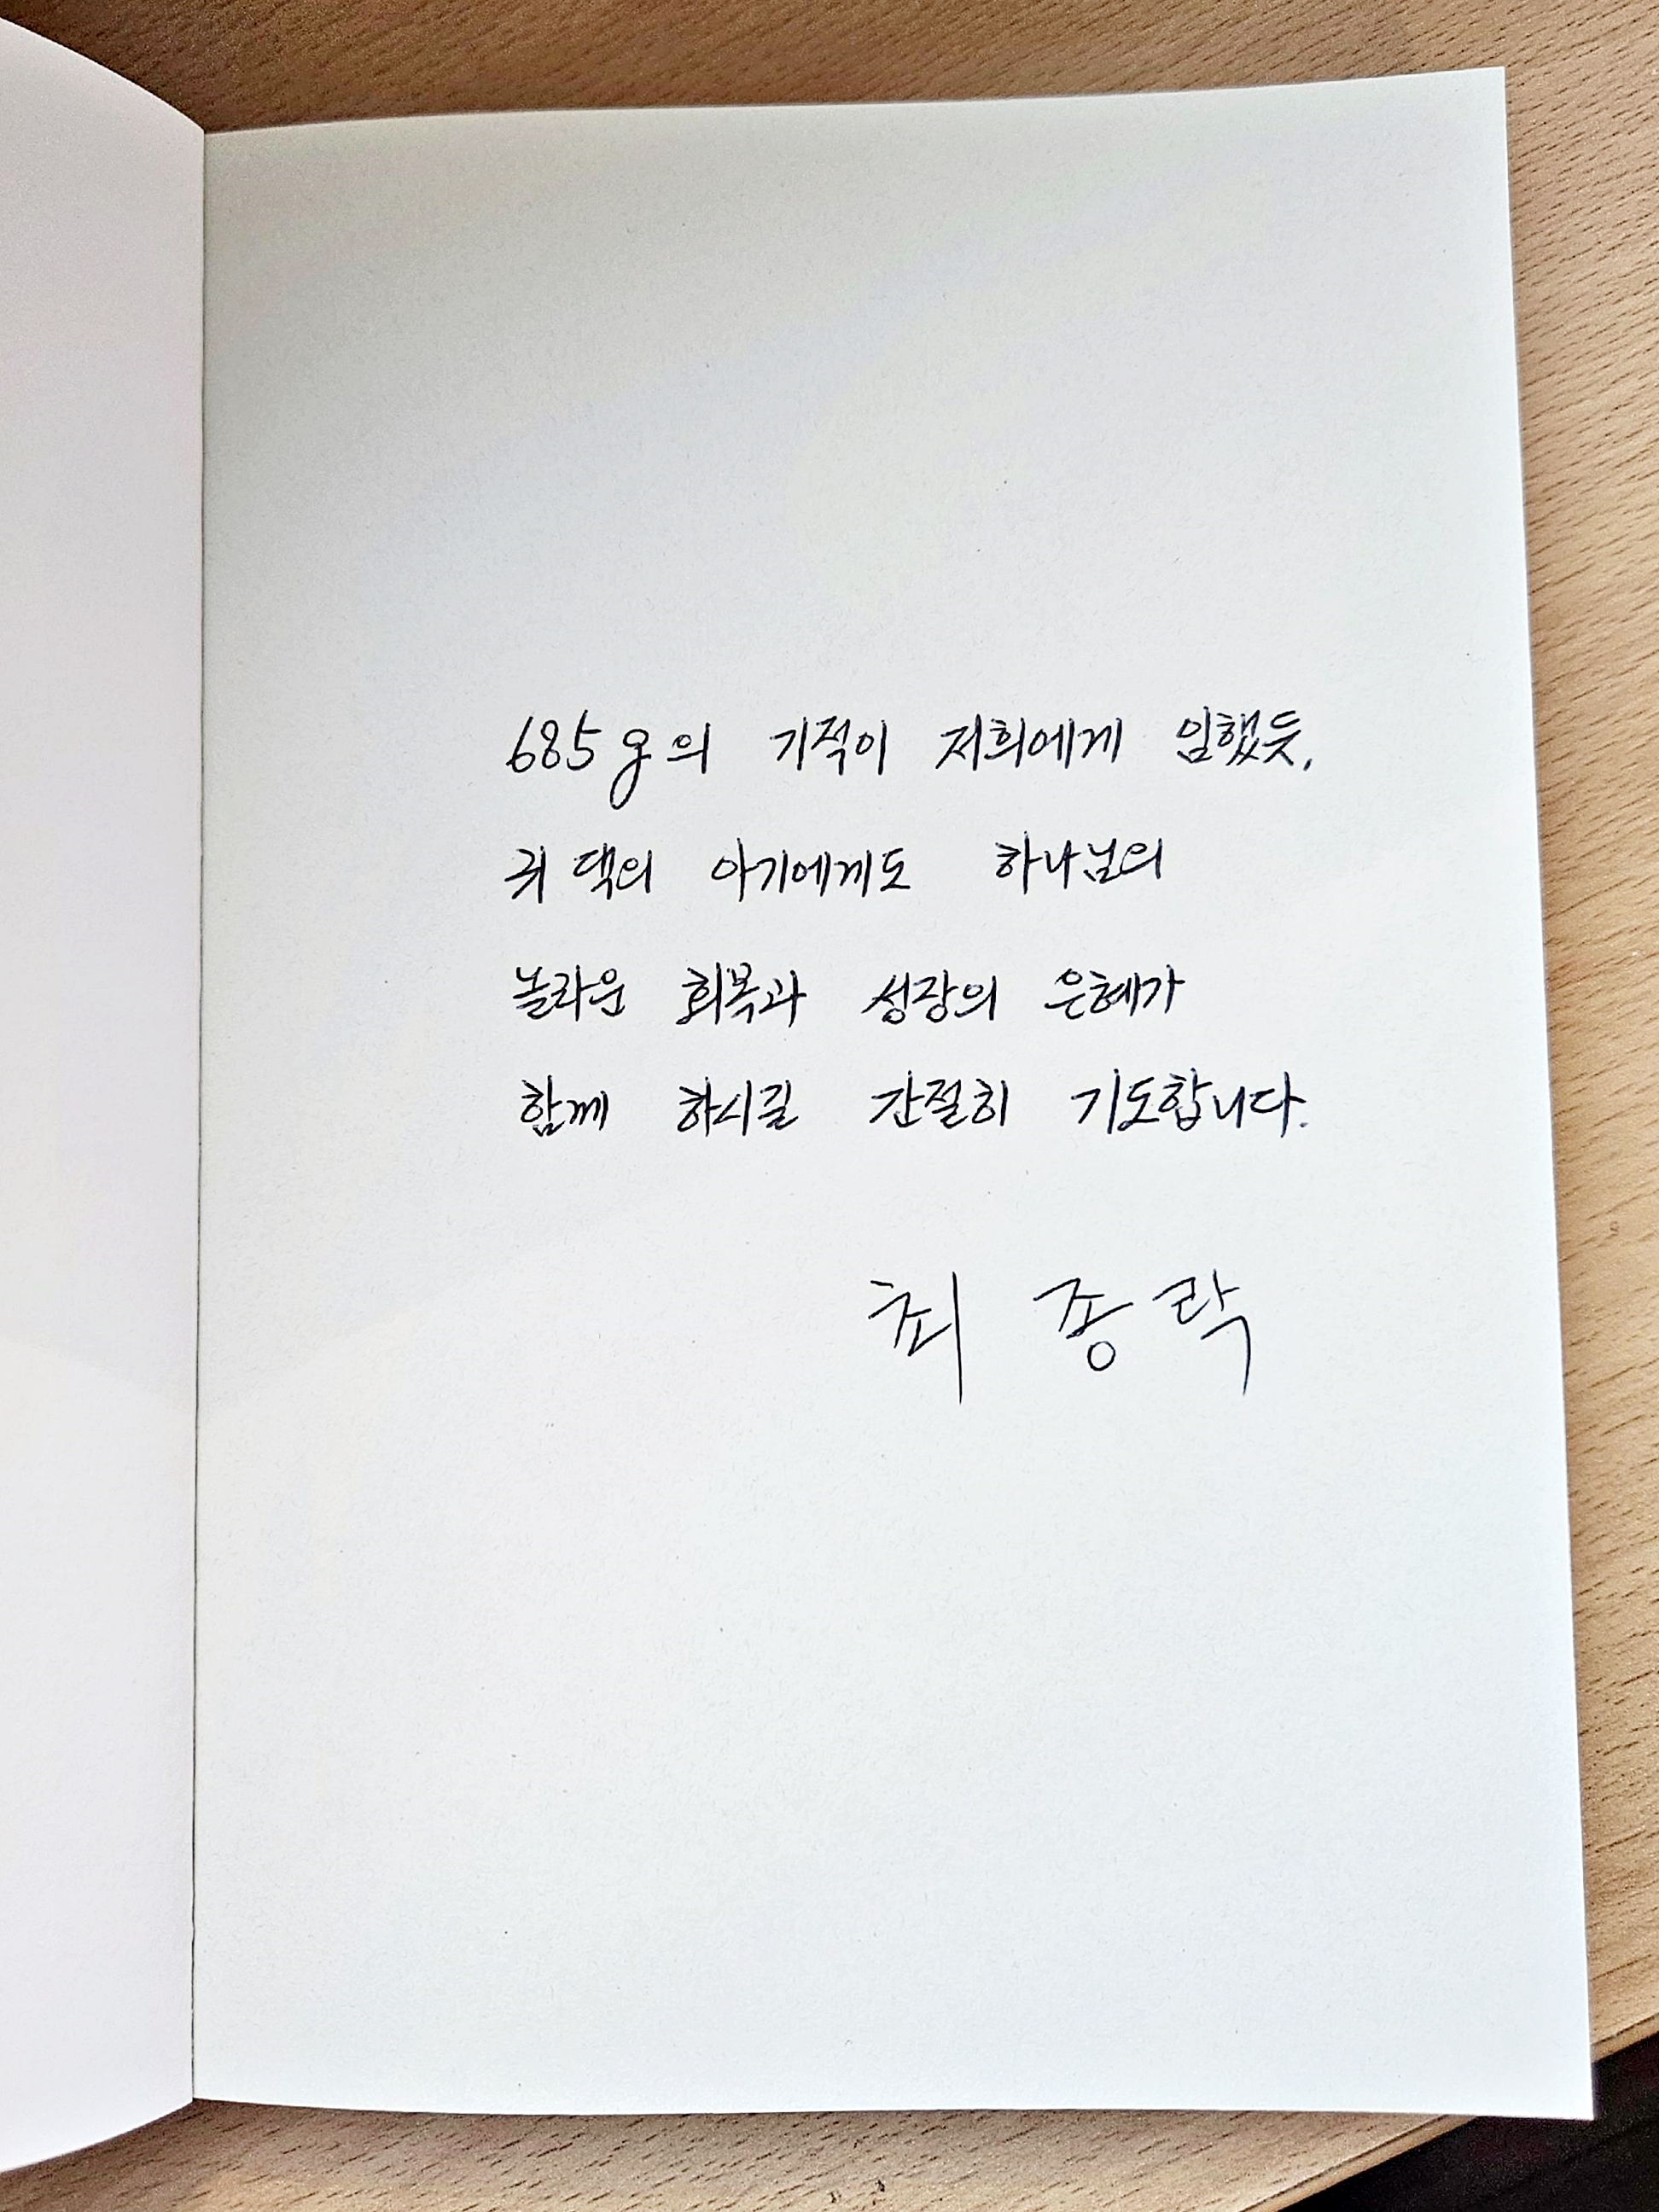 685g의 기적이 저희에게 임했듯,
귀 댁의 아기에게도 하나님의
놀라운 회복과 성장의 은혜가
함께 하시길 간절히 기도합니다.
최 종 락